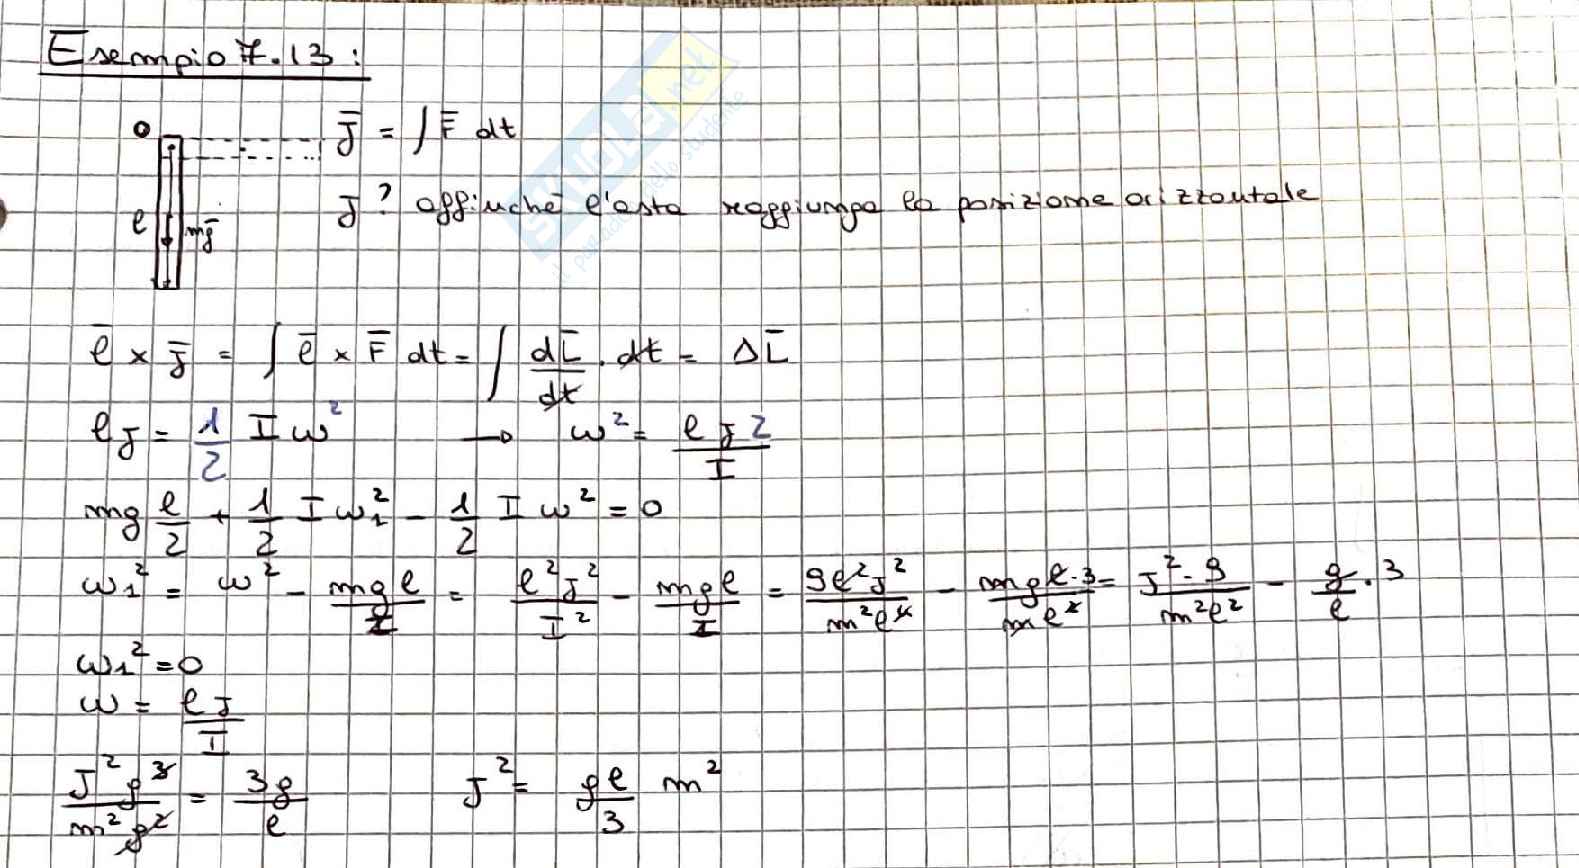 Esempio 7.13:
O
J̄ = ∫ F̄ dt
J? affinché l'asta raggiunga la posizione orizzontale
l
mḡ
l̄ × J̄ = ∫ l̄ × F̄ dt = ∫ dL̄/dt · dt = ΔL̄
lJ = 1/2 I ω² → ω² = lJ2/I
mg l/2 + 1/2 I ω₁² - 1/2 I ω² = 0
ω₁² = ω² - mgl/I = l²J²/I² - mgl/I = 9l²J²/m²l⁴ - mgl·3/ml² = J²·9/m²l² - g/l · 3
ω₁² = 0
ω = lJ/I
J² 9 3/m² l² = 3g/l J² = gl/3 m²
SKUOLA.net
il paradiso dello studente